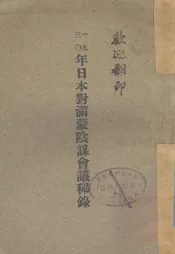 歡迎翻印
一九三〇年日本對滿蒙陰謀會議秘錄